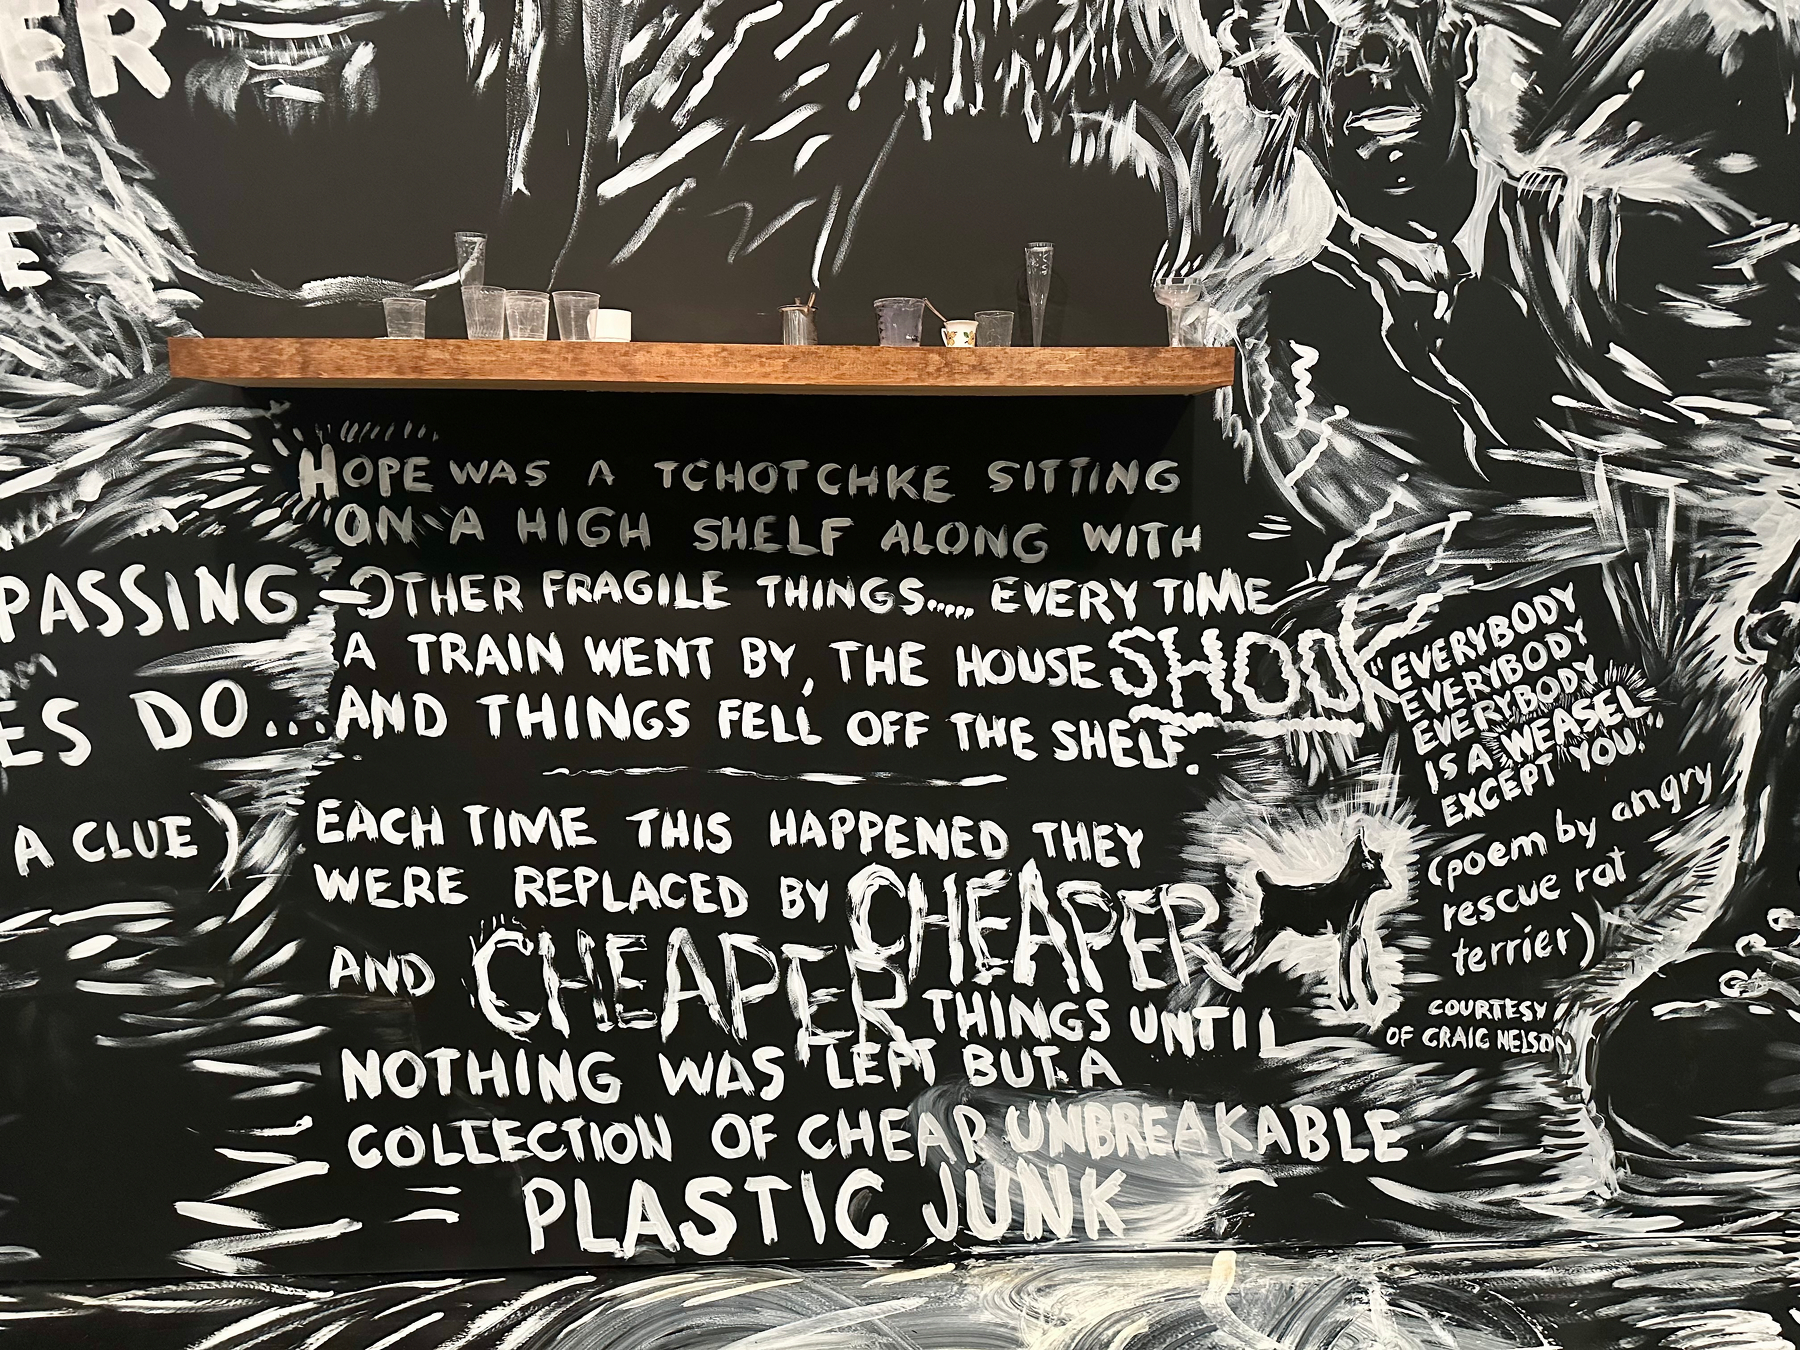 ER
E
HOPE WAS A TCHOTCHKE SITTING
ON A HIGH SHELF ALONG WITH
OTHER FRAGILE THINGS..... EVERY TIME
A TRAIN WENT BY, THE HOUSE SHOOK
AND THINGS FELL OFF THE SHELF.
EACH TIME THIS HAPPENED THEY
WERE REPLACED BY CHEAPER
AND CHEAPER THINGS UNTIL
NOTHING WAS LEFT BUT A
COLLECTION OF CHEAP UNBREAKABLE
PLASTIC JUNK
PASSING
ES DO...
A CLUE)
"EVERYBODY
EVERYBODY
EVERYBODY
IS A WEASEL
EXCEPT YOU."
(poem by angry
rescue rat
terrier)
COURTESY
OF CRAIG NELSON